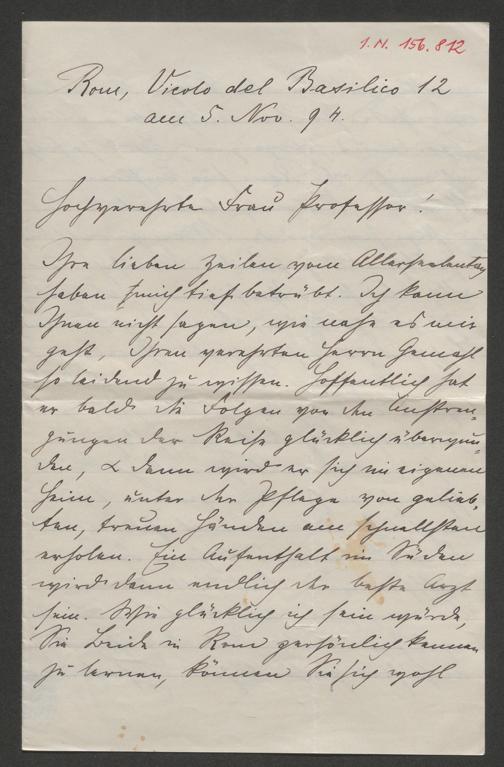 I.N. 156.812
Rom, Vicolo del Basilico 12
am 5. Nov. 94.
Hochverehrte Frau Professor!
Ihre lieben Zeilen vom Allerseelentag
haben mich tief betrübt. Ich kann
Ihnen nicht sagen, wie nahe es mir
geht, Ihren verehrten Herrn Gemahl
so leidend zu wissen. Hoffentlich hat
er bald die Folgen von den Anstren-
gungen der Reise glücklich überwun-
den, & dann wird er sich im eigenen
Heim, unter der Pflege von gelieb-
ten, treuen Händen am schnellsten
erholen. Ein Aufenthalt im Süden
wird dann endlich der beste Arzt
sein. Wie glücklich ich sein würde,
Sie Beide in Rom persönlich kennen
zu lernen, können Sie sich wohl